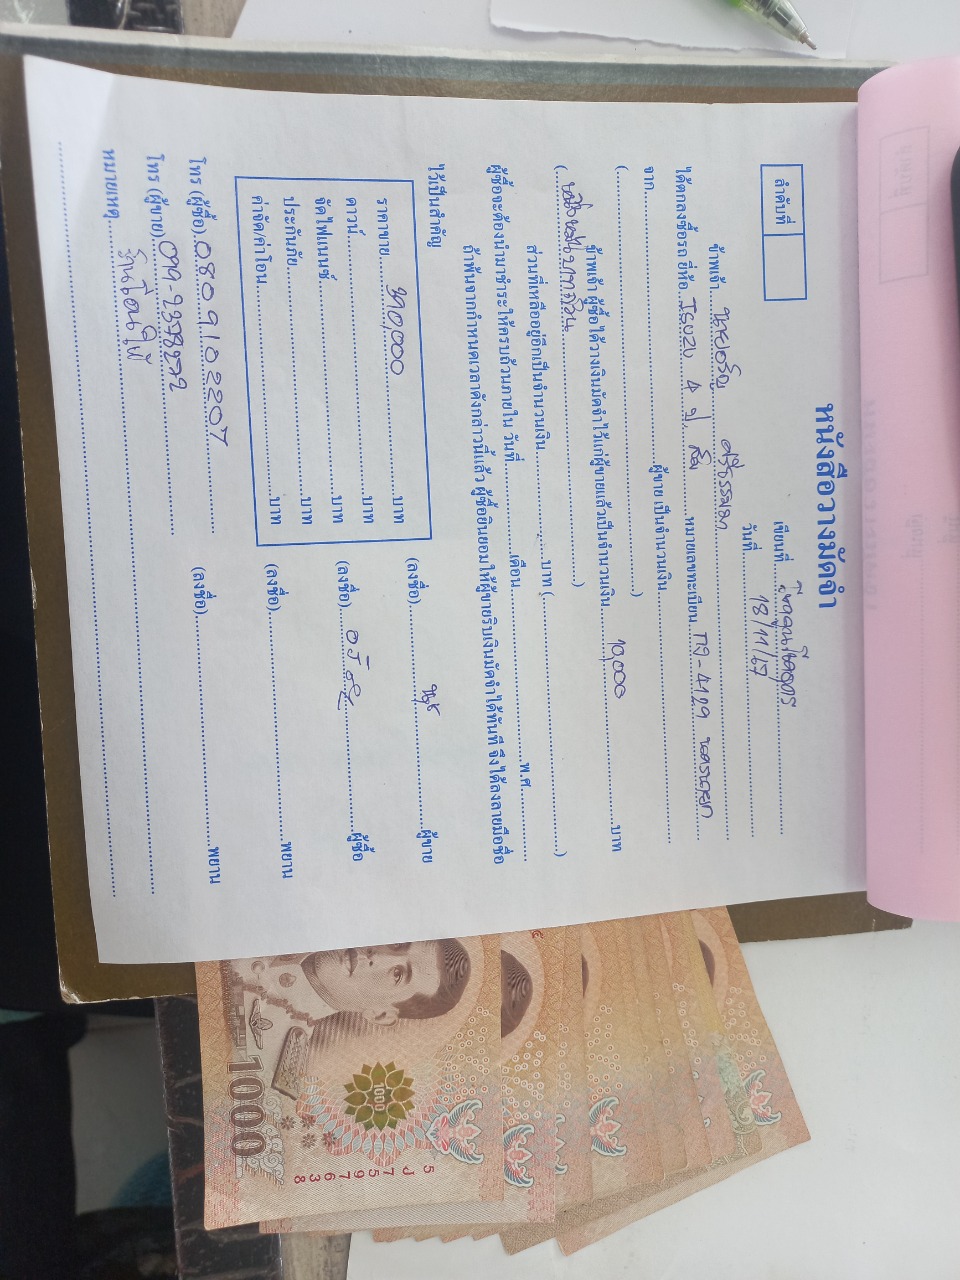 ลำดับที่
หนังสือวางมัดจำ
เขียนที่
วันที่ 18/11/67
ข้าพเจ้า
ได้ตกลงซื้อรถ ยี่ห้อ ISUZU หมายเลขทะเบียน นครนายก
จาก ผู้ขาย เป็นจำนวนเงิน
ข้าพเจ้า ผู้ซื้อ ได้วางเงินมัดจำไว้แก่ผู้ขายแล้วเป็นจำนวนเงิน 10,000 บาท
(หนึ่งหมื่นบาทถ้วน)
ส่วนที่เหลืออยู่อีกเป็นจำนวนเงิน บาท ( )
ผู้ซื้อจะต้องนำมาชำระให้ครบถ้วนภายใน วันที่ เดือน พ.ศ.
ถ้าพ้นจากกำหนดเวลาดังกล่าวนี้แล้ว ผู้ซื้อยินยอมให้ผู้ขายริบเงินมัดจำได้ทันที จึงได้ลงลายมือชื่อ
ไว้เป็นสำคัญ
ราคาขาย บาท
ดาวน์ บาท
จัดไฟแนนซ์ บาท
ประกันภัย บาท
ค่าจัด/ค่าโอน บาท
(ลงชื่อ) ผู้ขาย
(ลงชื่อ) ผู้ซื้อ
(ลงชื่อ) พยาน
(ลงชื่อ) พยาน
โทร (ผู้ซื้อ) 0809102207
โทร (ผู้ขาย)
หมายเหตุ
1000
1000
5J7597638